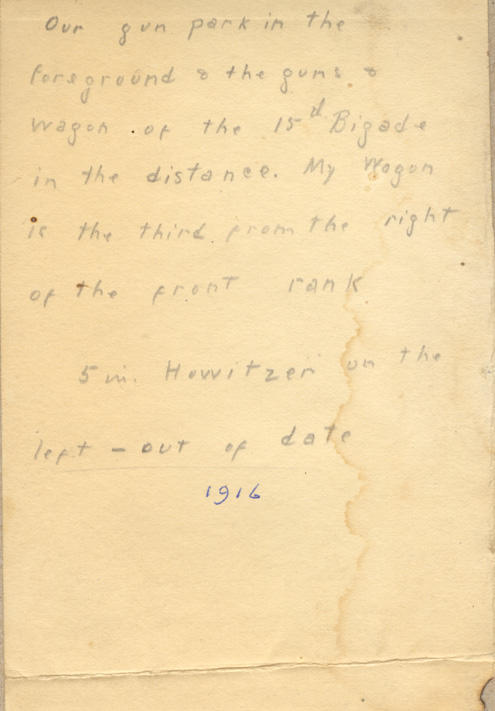 Our gun park in the
foreground & the guns &
wagon of the 15d Bigade
in the distance. My Wogon
is the third from the right
of the front rank
5 in. Howitzer on the
left - out of date
1916